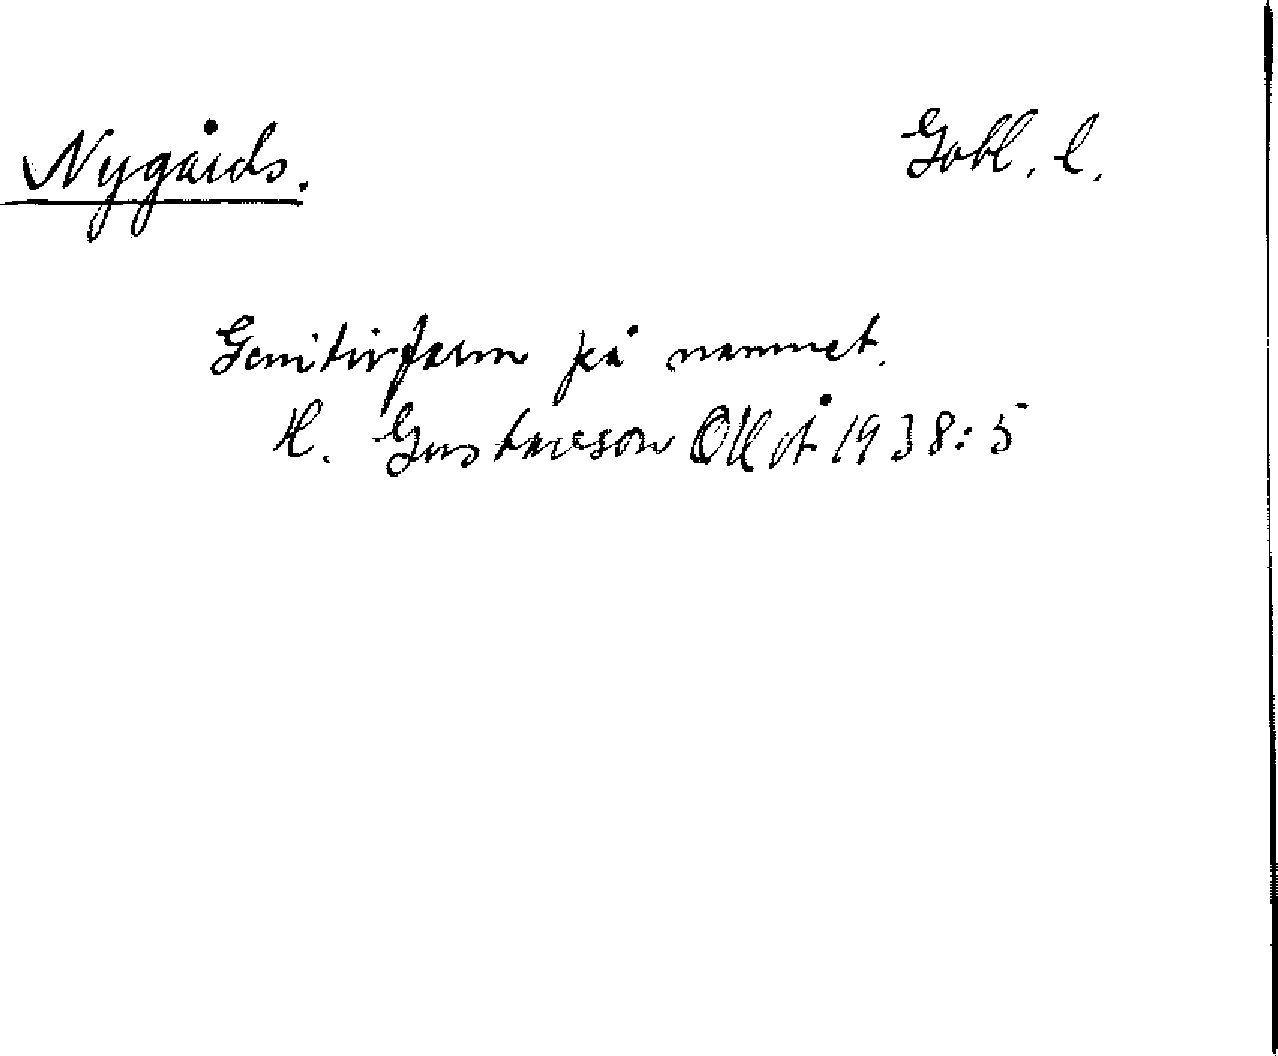 Nygårds.
Gotl. l.
Genitivform på namnet.
H. Gustavson OUÅ 1938: 5